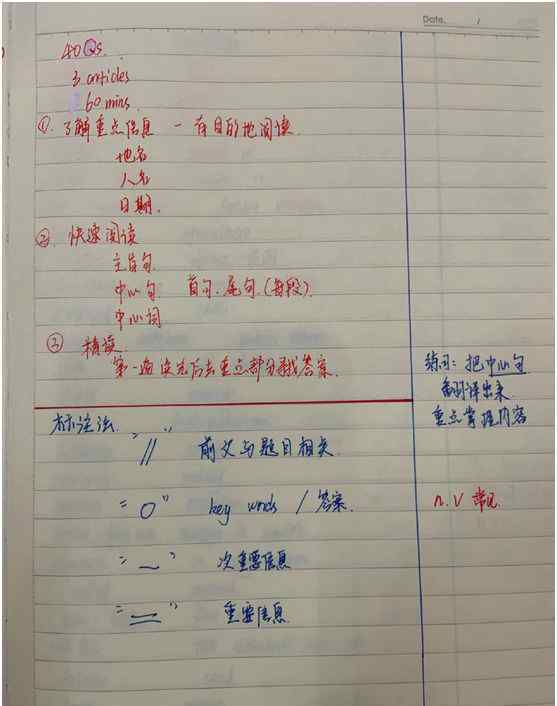 Date. /
40 Qs.
3 articles
60 mins.
①. 了解重点信息 - 有目的地阅读.
地名
人名
日期.
②. 快速阅读
主旨句.
中心句 首句.尾句.(每段).
中心词
③ 精读.
第一遍读完后去重点部分寻找答案.
练习: 把中心句
翻译出来
重点掌握内容
标注法.
"//" 前文与题目相关.
"○" key words / 答案.
n. v 常见
"—" 次重要信息
"=" 重要信息